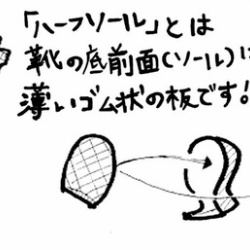 「ハーフソール」とは
靴の底前面(ソール)に
薄いゴム状の板です!